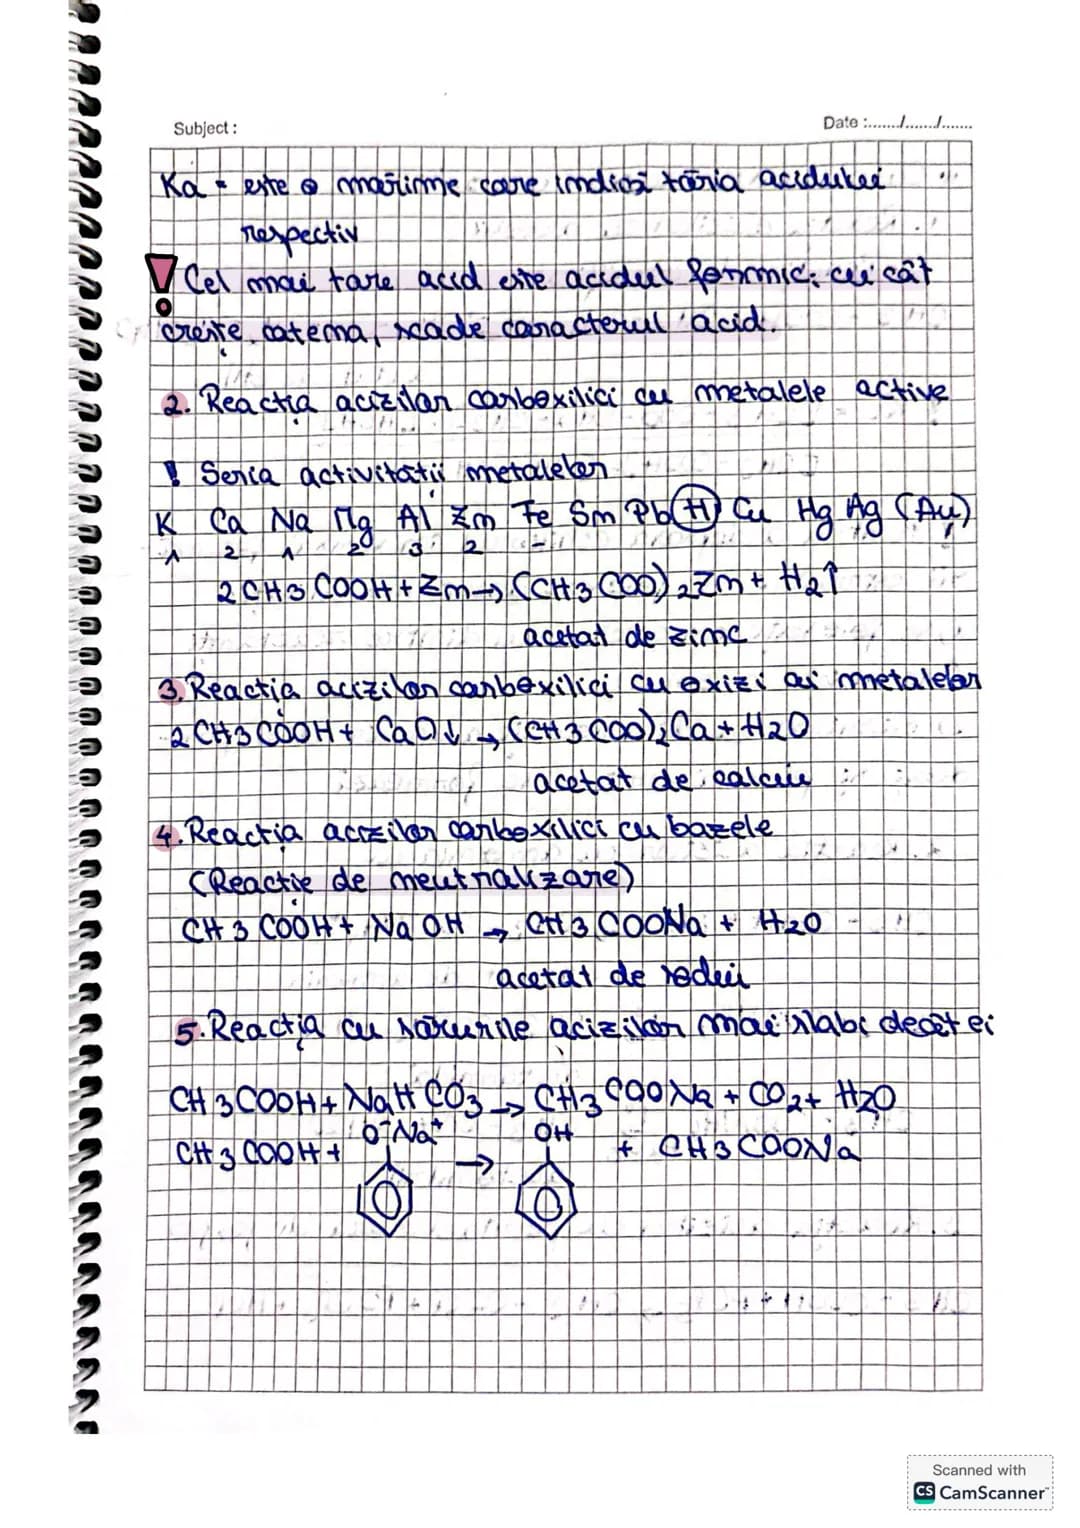 Subject :
Date :......./......./.......
Ka - este o mărime care indică tăria acidului
respectiv
! Cel mai tare acid este acidul formic; cu cât
crește catena, scade caracterul acid.
2. Reacția acizilor carboxilici cu metalele active
! Seria activității metalelor
K Ca Na Mg Al Zn Fe Sn Pb (H) Cu Hg Ag (Au)
1 2 1 2 3 2 -
2CH3COOH + Zn → (CH3COO)2Zn + H2↑
acetat de zinc
3. Reacția acizilor carboxilici cu oxizi ai metalelor
2CH3COOH + CaO↓ → (CH3COO)2Ca + H2O
acetat de calciu
4. Reacția acizilor carboxilici cu bazele
(Reacție de neutralizare)
CH3COOH + NaOH → CH3COONa + H2O
acetat de sodiu
5. Reacția cu sărurile acizilor mai slabi decât ei
CH3COOH + NaHCO3 → CH3COONa + CO2 + H2O
O⁻Na⁺ OH
CH3COOH + → + CH3COONa
Scanned with
CS CamScanner